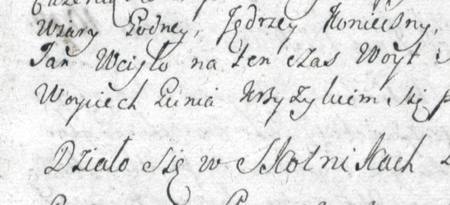 Wiary Godney, Jędrzej Konieczny,
Jan Wcisło na ten czas Woyt
Woyciech Gunia Krzyżykiem się
Działo się w Skotnikach